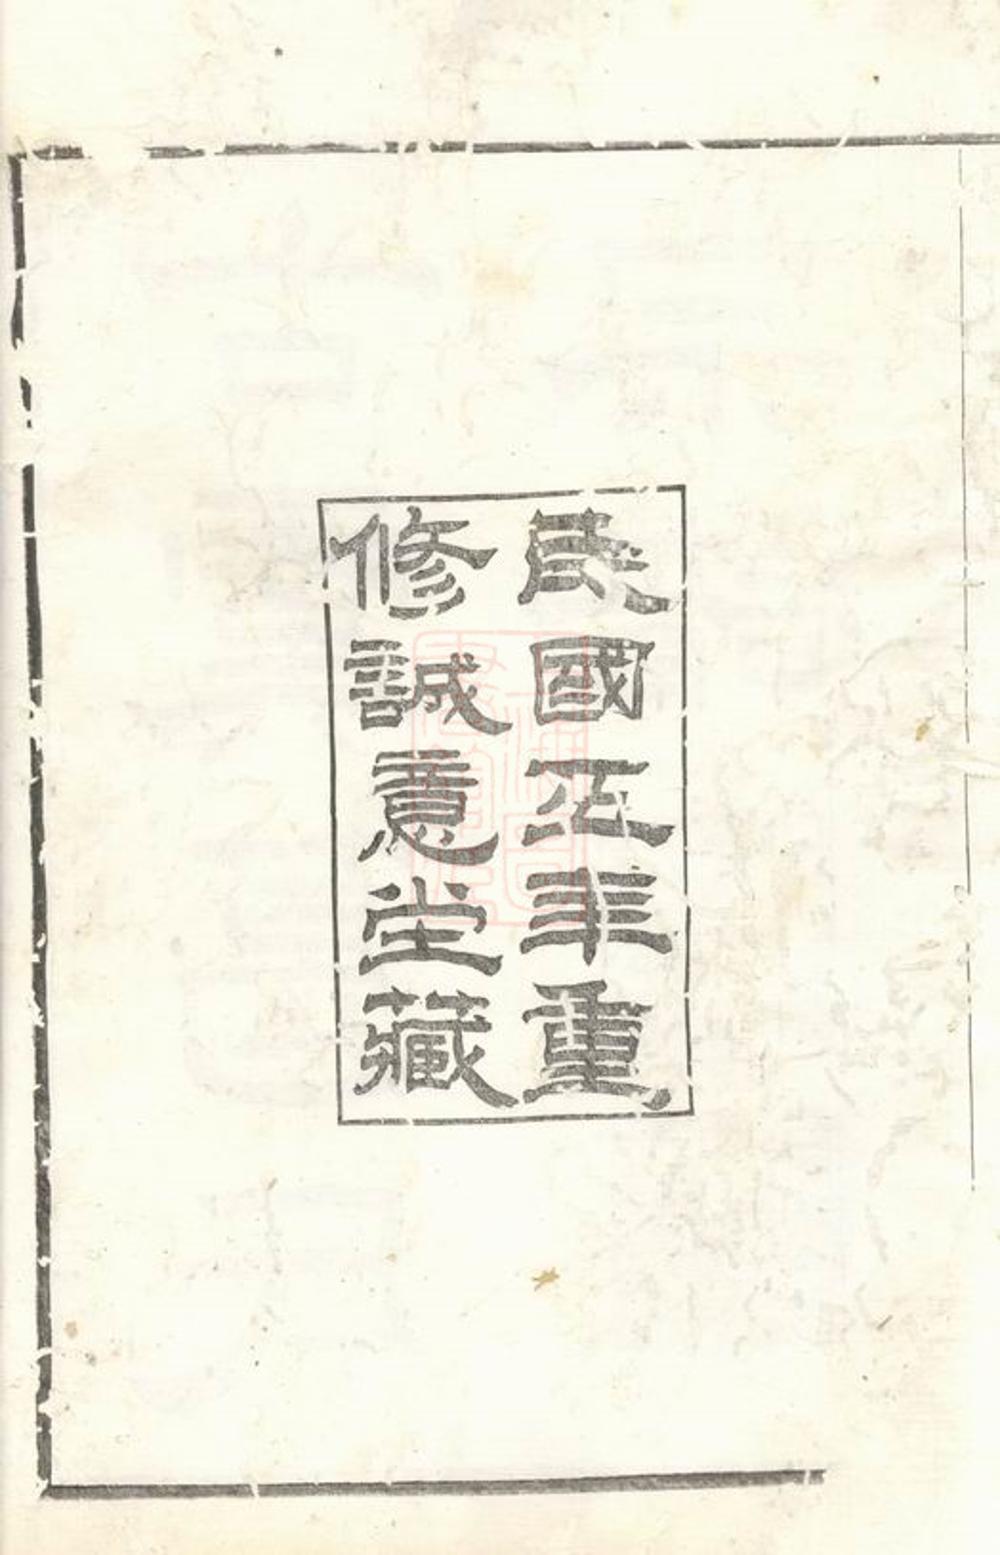 民國五年重
修誠意堂藏